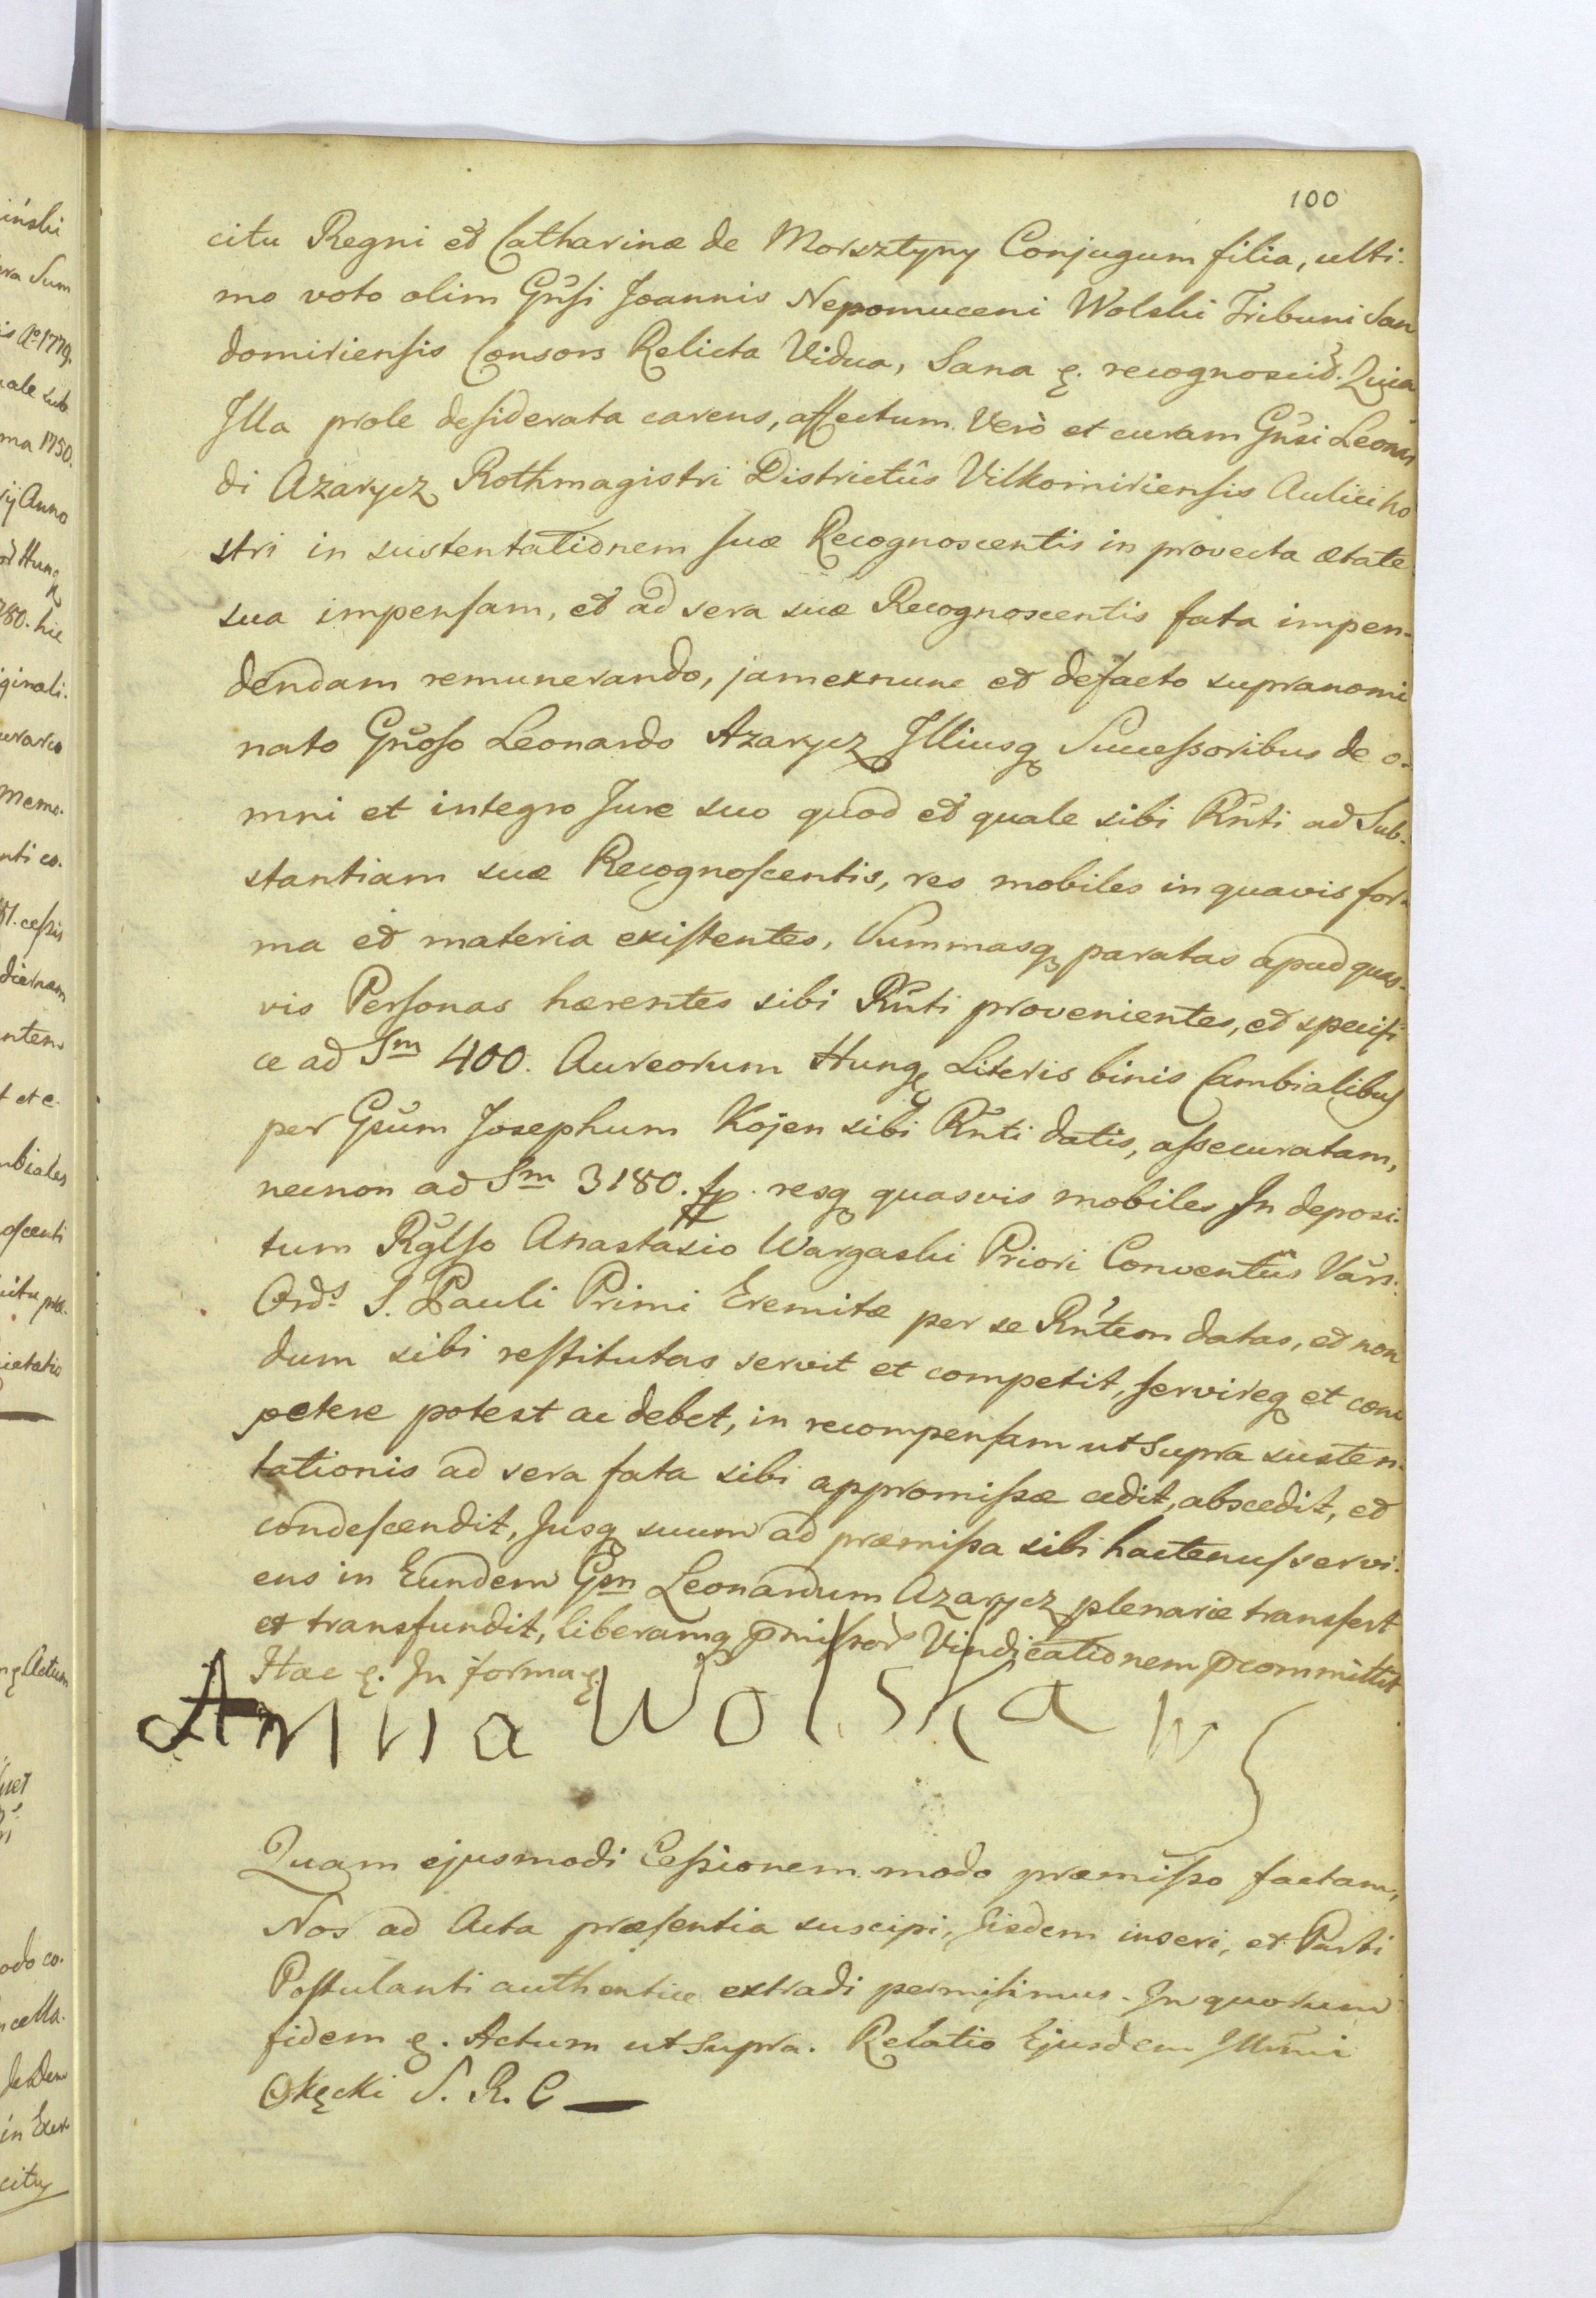 100
citu Regni et Catharinæ de Morsztyny Conjugum filia, ulti-
mo voto olim Gnsi Joannis Nepomuceni Wolski Tribuni San
domiriensis Consors Relicta Vidua, Sana &. recognoscit. Quia
Illa prole desiderata carens, affectum Verò et curam Gnsi Leonar
di Azarycz Rothmagistri Districtûs Vilkomiriensis Aulici no
stri in sustentationem suæ Recognoscentis in provecta ætate
sua impensam, et ad sera suæ Recognoscentis fata impen-
dendam remunerando, jamexnunc et defacto supranomi
nato Gnoso Leonardo Azarycz Illiusq Successoribus de o-
mni et integro Jure suo quod et quale sibi Rnti ad Sub-
stantiam suæ Recognoscentis, res mobiles in quavis for-
ma et materia existentes, Summasq paratas apud quas-
vis Personas hærentes sibi Rnti provenientes, et specifi
ce ad Sm 400. Aureorum Hung Literis binis Cambialibus
per Gsum Josephum Kojen sibi Rnti datis, assecuratam,
necnon ad Sm 3180. fp. resq quasvis mobiles In deposi-
tum Rglso Anastasio Wargaski Priori Conventûs Vars:
Ords S. Pauli Primi Eremitæ per se Rntem datas, et non
dum sibi restitutas servit et competit, servireq et com
petere potest ac debet, in recompensam ut supra susten-
tationis ad sera fata sibi appromissæ cedit, abscedit, et
condescendit, Jusq suum ad præmissa sibi hactenus servi-
ens in Eundem Gsm Leonardum Azarycz plenarie transfert
et transfundit, liberamq pmissor Vindicationem pcommittit
Hac &. In forma &.
Anna Wolska W S
Quam ejusmodi Cessionem modo præmisso factam,
Nos ad Acta præsentia suscipi, Eisdem inseri, et Parti
Postulanti authentice extradi permisimus. In quorum
fidem &. Actum ut supra. Relatio Ejusdem Illmi
Okęcki S. R. C